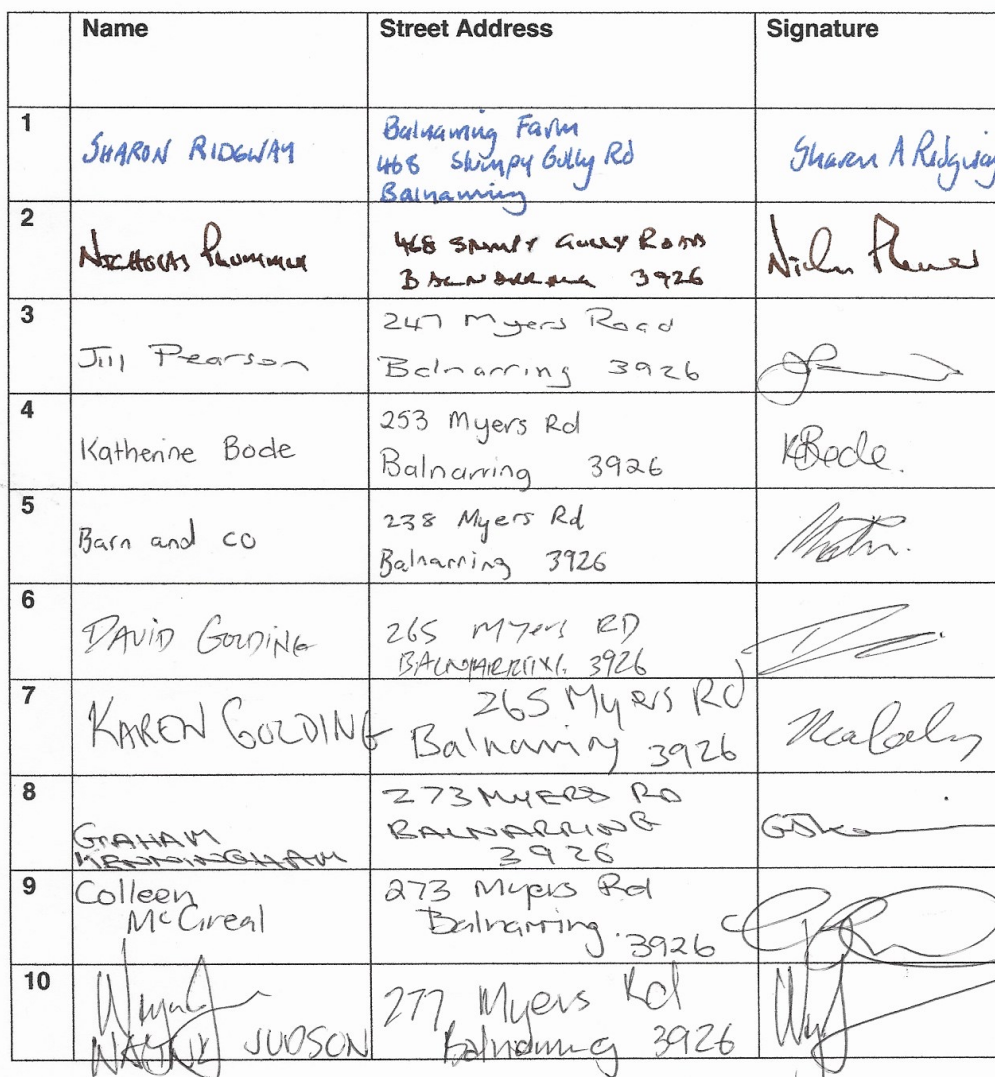 Name Street Address Signature
1
SHARON RIDGWAY
Balnarring Farm
468 Stumpy Gully Rd
Balnarring
Sharon A Ridgway
2
NICHOLAS
468 STUMPY GULLY ROAD
BALNARRING 3926
3
Jill Pearson
247 Myers Road
Balnarring 3926
4
Katherine Bode
253 Myers Rd
Balnarring 3926
KBode.
5
Barn and co
238 Myers Rd
Balnarring 3926
6
DAVID GOLDING
265 Myers RD
BALNARRING. 3926
7
KAREN GOLDING
265 Myers Rd
Balnarring 3926
8
GRAHAM
KENNINGHAM
273 MYERS RD
BALNARRING
3926
9
Colleen
McGreal
273 Myers Rd
Balnarring. 3926
10
WAYNE JUDSON
277 Myers Rd
Balnarring 3926